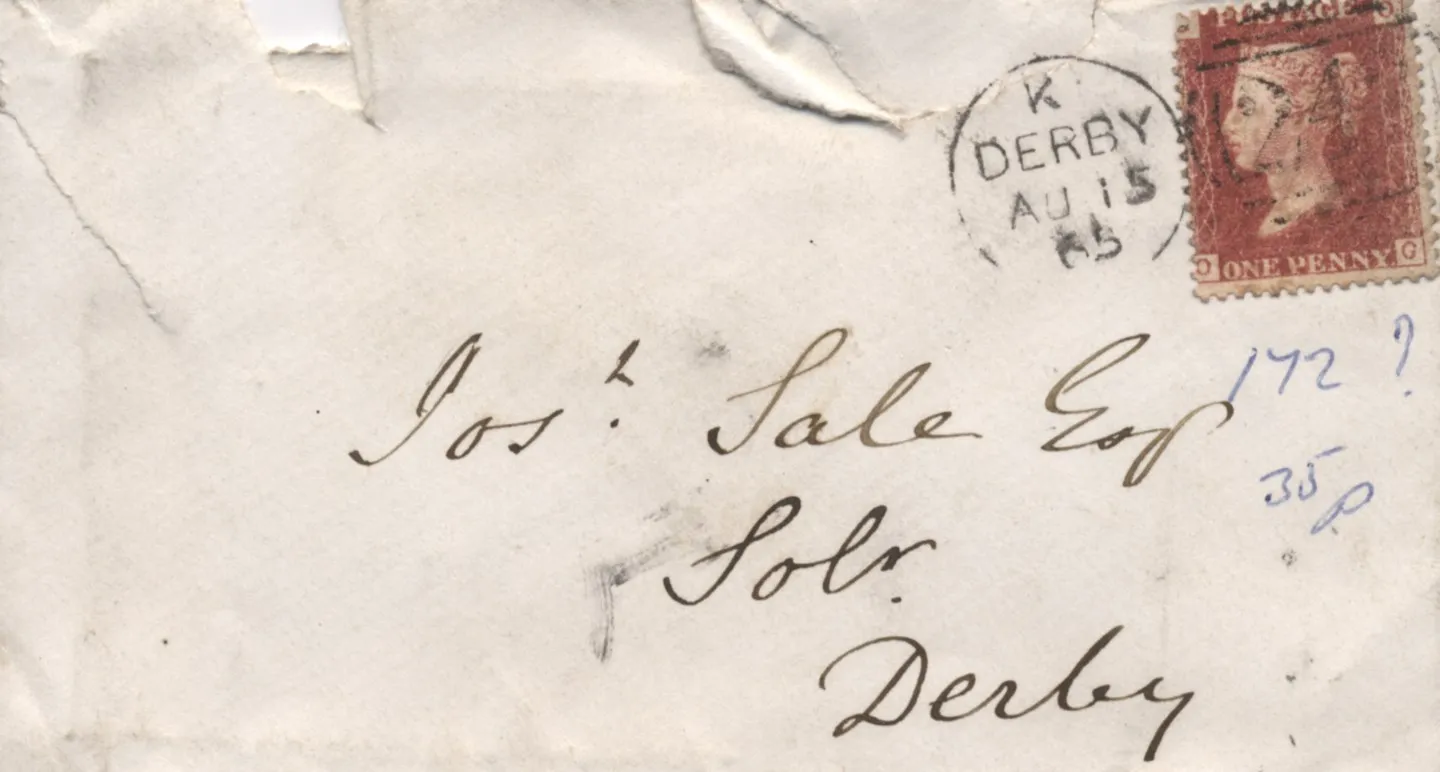 POSTAGE
K
DERBY
AU 15
65
ONE PENNY
O G
Josh. Sale Esq
172 ?
35p
Solr.
Derby